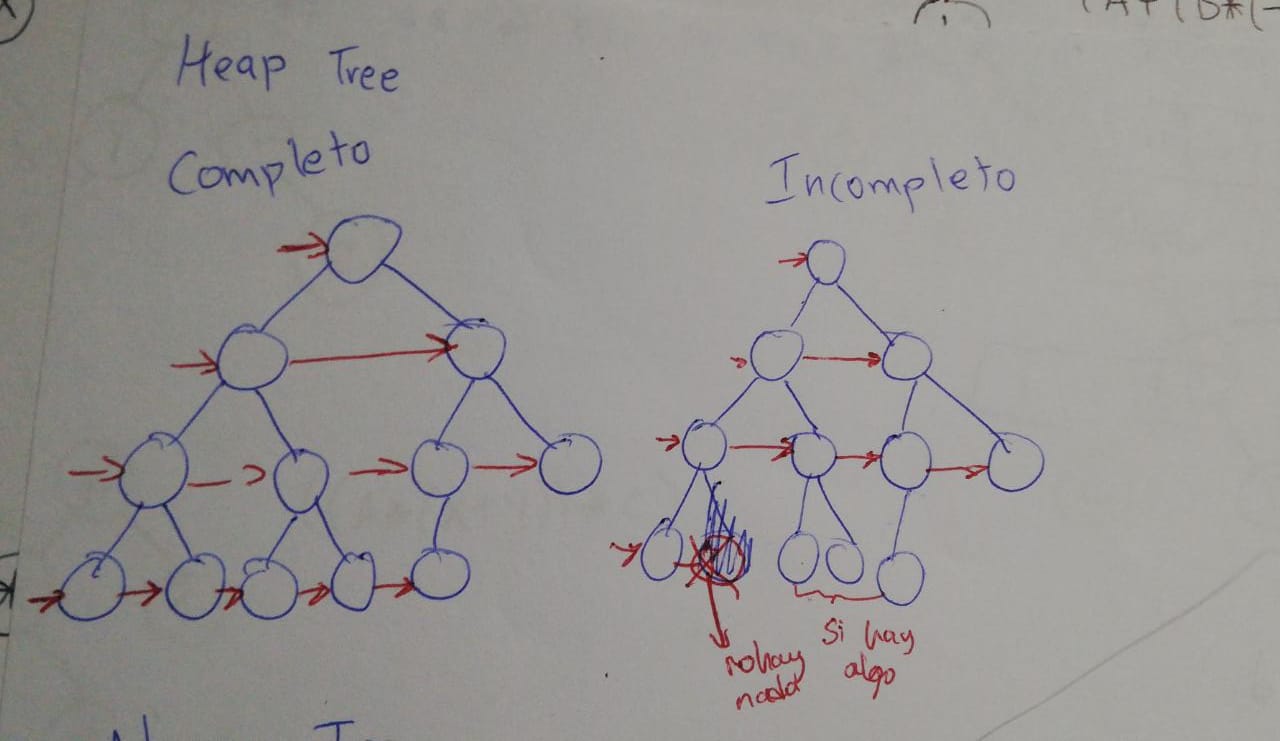 Heap Tree
Completo
Incompleto
no hay
nada
Si hay
algo